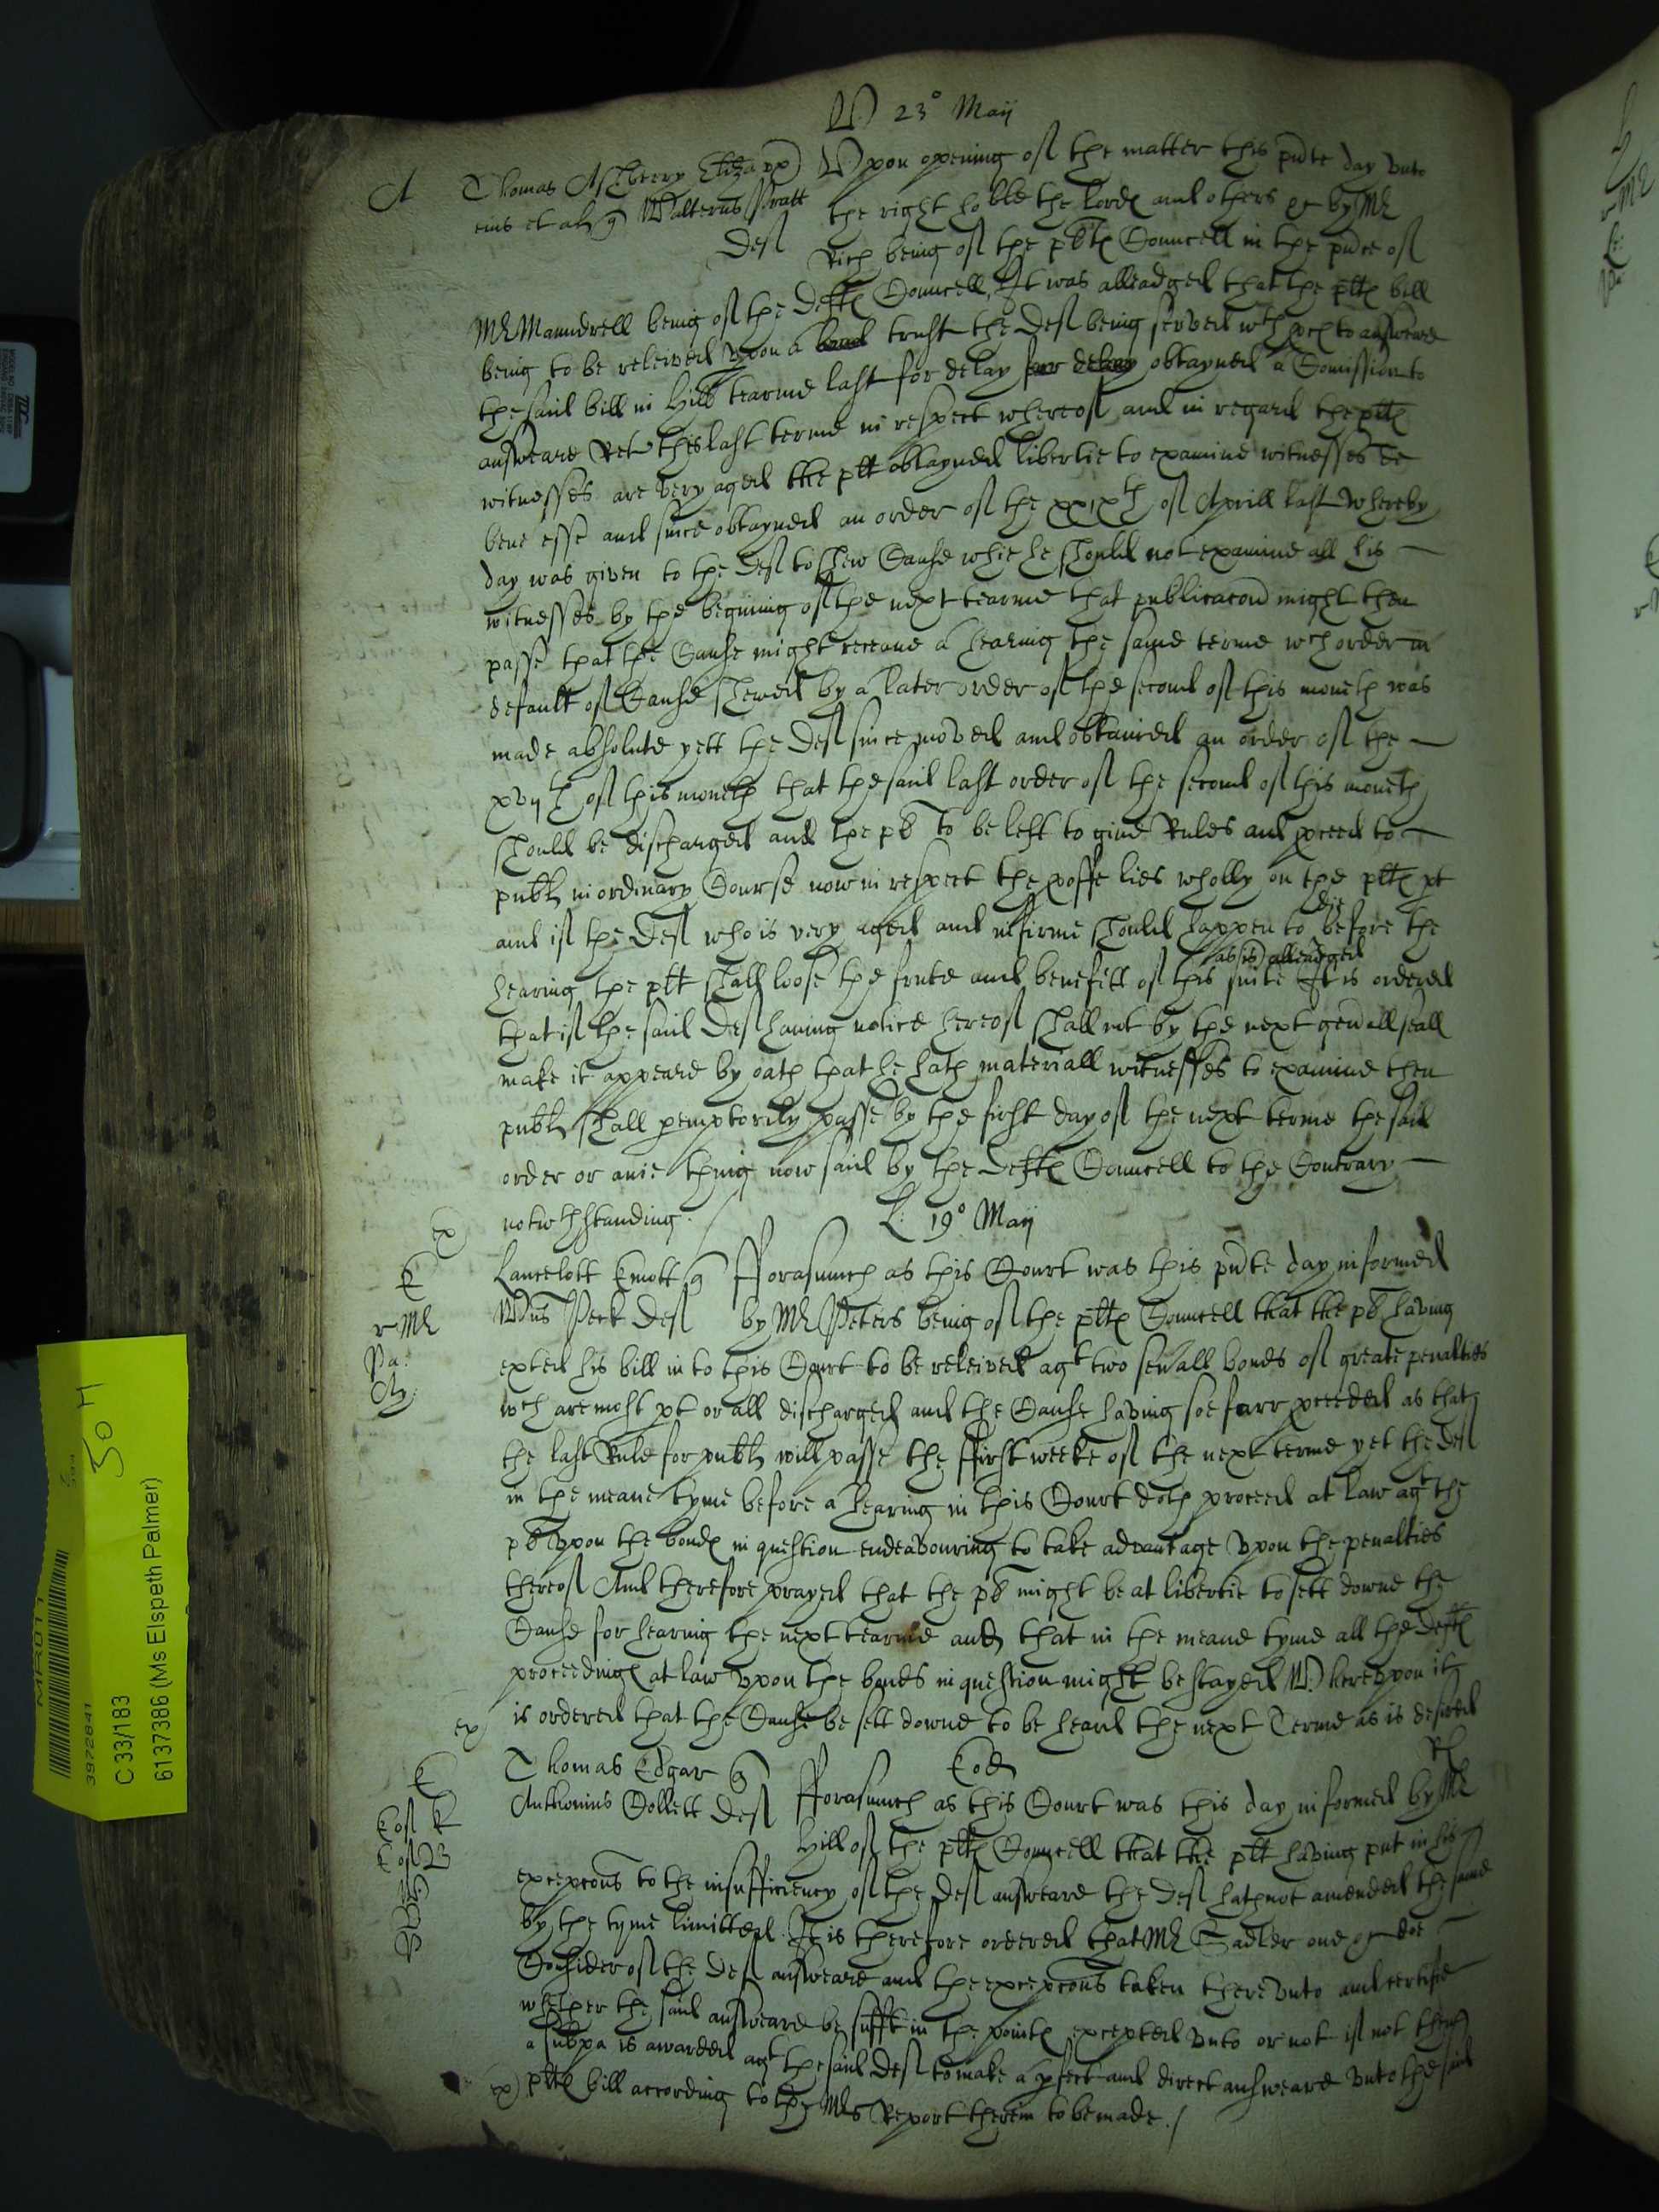 V 23° Maij
A Thomas Ashberry Eliza ux Vpon opening of the matter this pnte day vnto
eius et al q Walterus Pratt the right hoble the lordes and others &c by Mr
Def Rich being of the pltes Councell in the pnce of
Mr Maundrell being of the Deftes Councell, It was alleadged that the pltes bill
being to be releived vpon a trust the Def being served wth pces to answeare
the said bill in Hill tearme last for delay for delay obtayned a Comission to
answeare Ret this last terme in respect whereof and in regard the pltes
witnesses are very aged the plt obtayned libertie to examine witnesses de
bene esse and since obtayned an order of the xxixth of Aprill last whereby
day was given to the Def to shew Cause whie he should not examine all his
witnesses by the begining of the next tearme that publicacon might then
passe that the Cause might receaue a hearing the same terme wch order in
default of Cause shewed by a later order of the second of this moneth was
made absolute yett the Def since moved and obtained an order of the
xvijth of this moneth that the said last order of the second of this moneth
should be discharged and the pl to be left to give Rules and pceed to
publ in ordinary Course now in respect the poffe lies wholly on the pltes pt
and if the Def who is very aged and infirme should happen to die before the
hearing the plt shall loose the frute and benefitt of this suite as is alleadged It is ordered
that if the said Def having notice hereof shall not by the next genall seall
make it appeare by oath that he hath materiall witnesses to examine then
publ shall pemptorily passe by the first day of the next terme the said
order or anie thing now said by the deftes Councell to the Contrary
notwthstanding.
ex
L: 19° Maij
K Lancelott Knott q Fforasmuch as this Court was this pnte day informed
r Mr Wms Peck Def by Mr Peters being of the pltes Councell that the pl having
Pa:
exted his bill in to this Court to be releived agt two sevall bonds of greate penalties
wch are most pt or all discharged and the Cause having soe farr pceeded as that
the last Rule for publ will passe the ffirst weeke of the next terme yet the def
in the meane tyme before a hearing in this Court doth proceed at law agt the
pl vpon the bondes in question endeavouring to take advantage vpon the penalties
thereof And therefore prayed that the pl might be at libertie to sett downe the
Cause for hearing the next tearme and that in the meane tyme all the deftes
proceedinges at law vpon the bonds in question might be stayed Wherevpon it
is ordered that the Cause be sett downe to be heard the next Terme as is desired
ex
Eod
E Thomas Edgar q
Anthonius Collett Def Fforasmuch as this Court was this day informed by Mr
Hill of the pltes Councell that the plt having put in his
excepcons to the insufficiency of the Def answeare the Def hath not amended the same
by the tyme limitted. It is therefore ordered that Mr Sadler one &c doe
Consider of the Def answeare and the excepcons taken therevnto and certifie
whether the said answeare be sufft in the pointes excepted vnto or not if not then
a subpa is awarded agt the said Def to make a pfect and direct answeare vnto the said
ex pltes bill according to the Mrs Report therein to be made./
50 H
MR011
3972841
C 33/183
6137386 (Ms Elspeth Palmer)